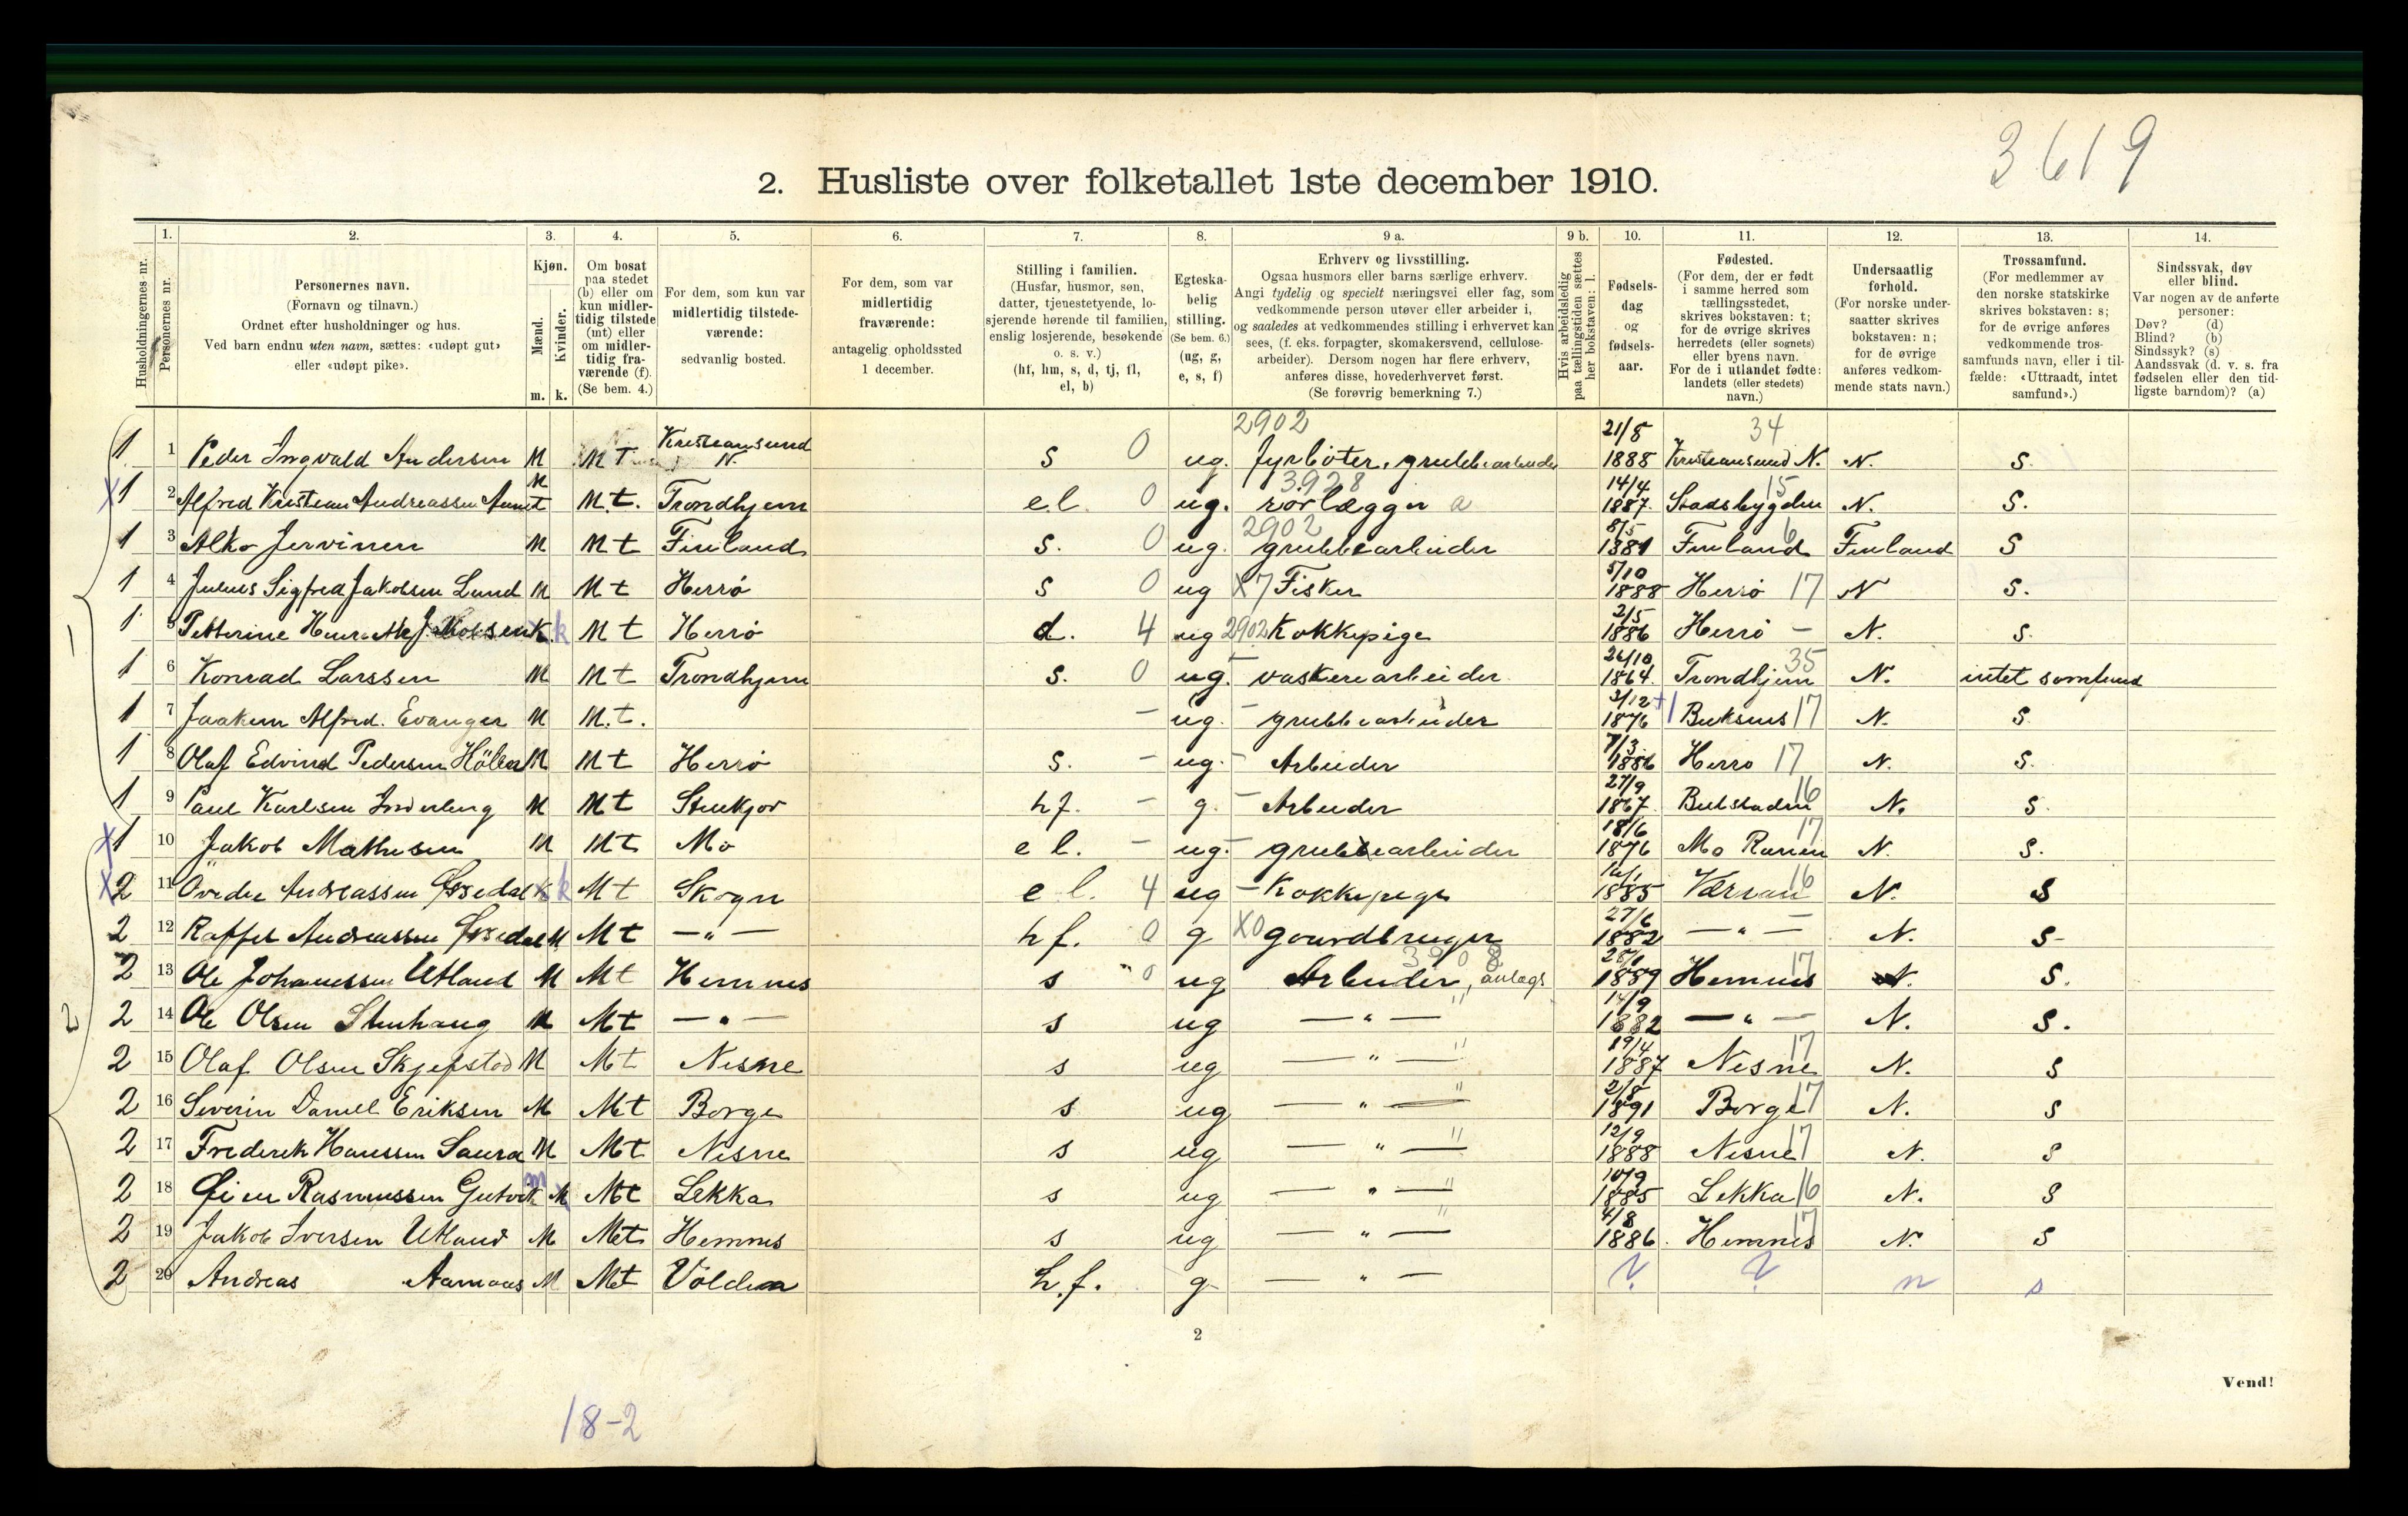 3619
2. Husliste over folketallet 1ste december 1910.
Husholdningernes nr.
1. Personernes nr.
2. Personernes navn. (Fornavn og tilnavn.) Ordnet efter husholdninger og hus. Ved barn endnu uten navn, sættes: «udøpt gut» eller «udøpt pike».
3. Kjøn. Mænd. Kvinder. m. k.
4. Om bosat paa stedet (b) eller om kun midlertidig tilstede (mt) eller om midlertidig fraværende (f). (Se bem. 4.)
5. For dem, som kun var midlertidig tilstedeværende: sedvanlig bosted.
6. For dem, som var midlertidig fraværende: antagelig opholdssted 1 december.
7. Stilling i familien. (Husfar, husmor, søn, datter, tjenestetyende, losjerende hørende til familien, enslig losjerende, besøkende o. s. v.) (hf, hm, s, d, tj, fl, el, b)
8. Egteskabelig stilling. (Se bem. 6.) (ug, g, e, s, f)
9 a. Erhverv og livsstilling. Ogsaa husmors eller barns særlige erhverv. Angi tydelig og specielt næringsvei eller fag, som vedkommende person utøver eller arbeider i, og saaledes at vedkommendes stilling i erhvervet kan sees, (f. eks. forpagter, skomakersvend, cellulosearbeider). Dersom nogen har flere erhverv, anføres disse, hovederhvervet først. (Se forøvrig bemerkning 7.)
9 b. Hvis arbeidsledig paa tællingstiden sættes her bokstaven: l.
10. Fødselsdag og fødselsaar.
11. Fødested. (For dem, der er født i samme herred som tællingsstedet, skrives bokstaven: t; for de øvrige skrives herredets (eller sognets) eller byens navn. For de i utlandet fødte: landets (eller stedets) navn.)
12. Undersaatlig forhold. (For norske undersaatter skrives bokstaven: n; for de øvrige anføres vedkommende stats navn.)
13. Trossamfund. (For medlemmer av den norske statskirke skrives bokstaven: s; for de øvrige anføres vedkommende trossamfunds navn, eller i tilfælde: «Uttraadt, intet samfund».)
14. Sindssvak, døv eller blind. Var nogen av de anførte personer: Døv? (d) Blind? (b) Sindssyk? (s) Aandssvak (d. v. s. fra fødselen eller den tidligste barndom)? (a)
1 1 Peder Ingvald Andersen M Mt Kristiansund N. s 0 ug. 2902 fyrböter, grubbearbeider 21/8 1888 34 Kristiansund N. N. S.
1 2 Alfred Kristian Andreassen Aunet M M.t. Trondhjem el. 0 ug. 3928 rörlægger a 14/4 1887. 15 Stadsbygden N. S.
1 3 Alko Jervinen M Mt Finland s. 0 ug. 2902 grubbearbeider 8/5 1881 6 Finland Finland S
1 4 Julius Sigfred Jakobsen Lund M Mt Herrö s 0 ug X7 Fisker 5/10 1888 Herrö 17 N S.
1 5 Petterine Jakobsen K k Mt Herrö d. 4 ug 2902 Kokkepige 2/5 1886 Herrö – N. S.
1 6 Konrad Larssen M Mt Trondhjem s. 0 ug. – vaskeriarbeider 26/10 1864. 35 Trondhjem N. intet samfund
1 7 Jaakim Alfred. Evanger M M.t. – ug. – grubbearbeider 2/12 1876 17 N. S.
1 8 Olaf Edvind Pedersen Höllen M Mt Herrö s. – ug. – Arbeider 7/3 1886 Herrö 17 N. S.
1 9 Paul Karlsen Inderberg M Mt Stenkjær hf. – g. – Arbeider 27/9 1867. Beitstaden 16 N. S.
1 10 Jakob Mathisen M Mt Mo el. – ug. – grubbearbeider 18/6 1876 17 Mo Ranen N. S.
2 11 Andreassen K k Mt Skogn el. 4 ug – Kokkepige 1885 16 N. S
2 12 Andreassen M Mt – " – hf. 0 g X0 gaardbruger 27/6 1882 – " – N. S
2 13 Ole Johanessen Utland M Mt Hemnes s 0 ug 3908 Arbeider, anlægs 28/1 1889 17 Hemnes N. S.
2 14 Ole Olsen Stenhaug M Mt – " – s ug – " – " 14/9 1882 – " – N. S.
2 15 Olaf Olsen Skjefstad M Mt Nesne s ug – " – " 19/4 1887 17 Nesne N. S
2 16 Severin Daniel Eriksen M Mt Borge s ug – " – " 2/8 1891 Borge 17 N. S
2 17 Frederik Hanssen Saura M Mt Nesne s ug – " – " 12/9 1888 Nesne 17 N. S
2 18 Rasmussen Gutvik m M Mt Lekka s ug – " – " 10/9 1885 Lekka 16 N. S
2 19 Jakob Iversen Utland M Mt Hemnes s ug – " – " 4/8 1886. Hemnes 17 N. S
2 20 Andreas Aamaas M Mt Volden h.f. g – " – ? ? n s
2
Vend!
18-2